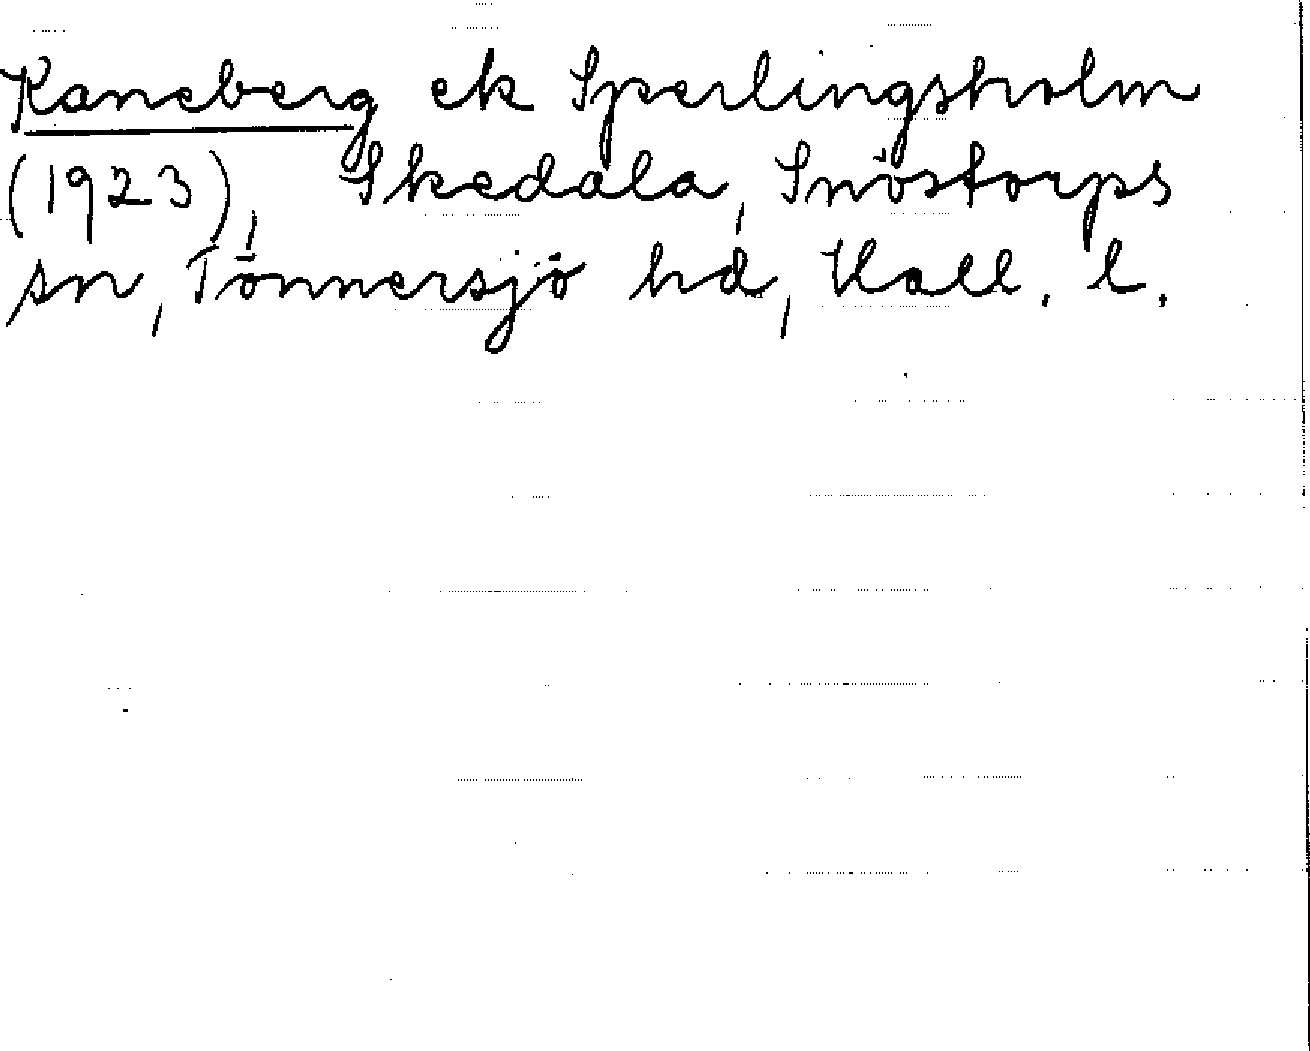 Kaneberg ek Sperlingsholm
(1923), Skedala, Snöstorps
sn, Tönnersjö hd, Hall. l.